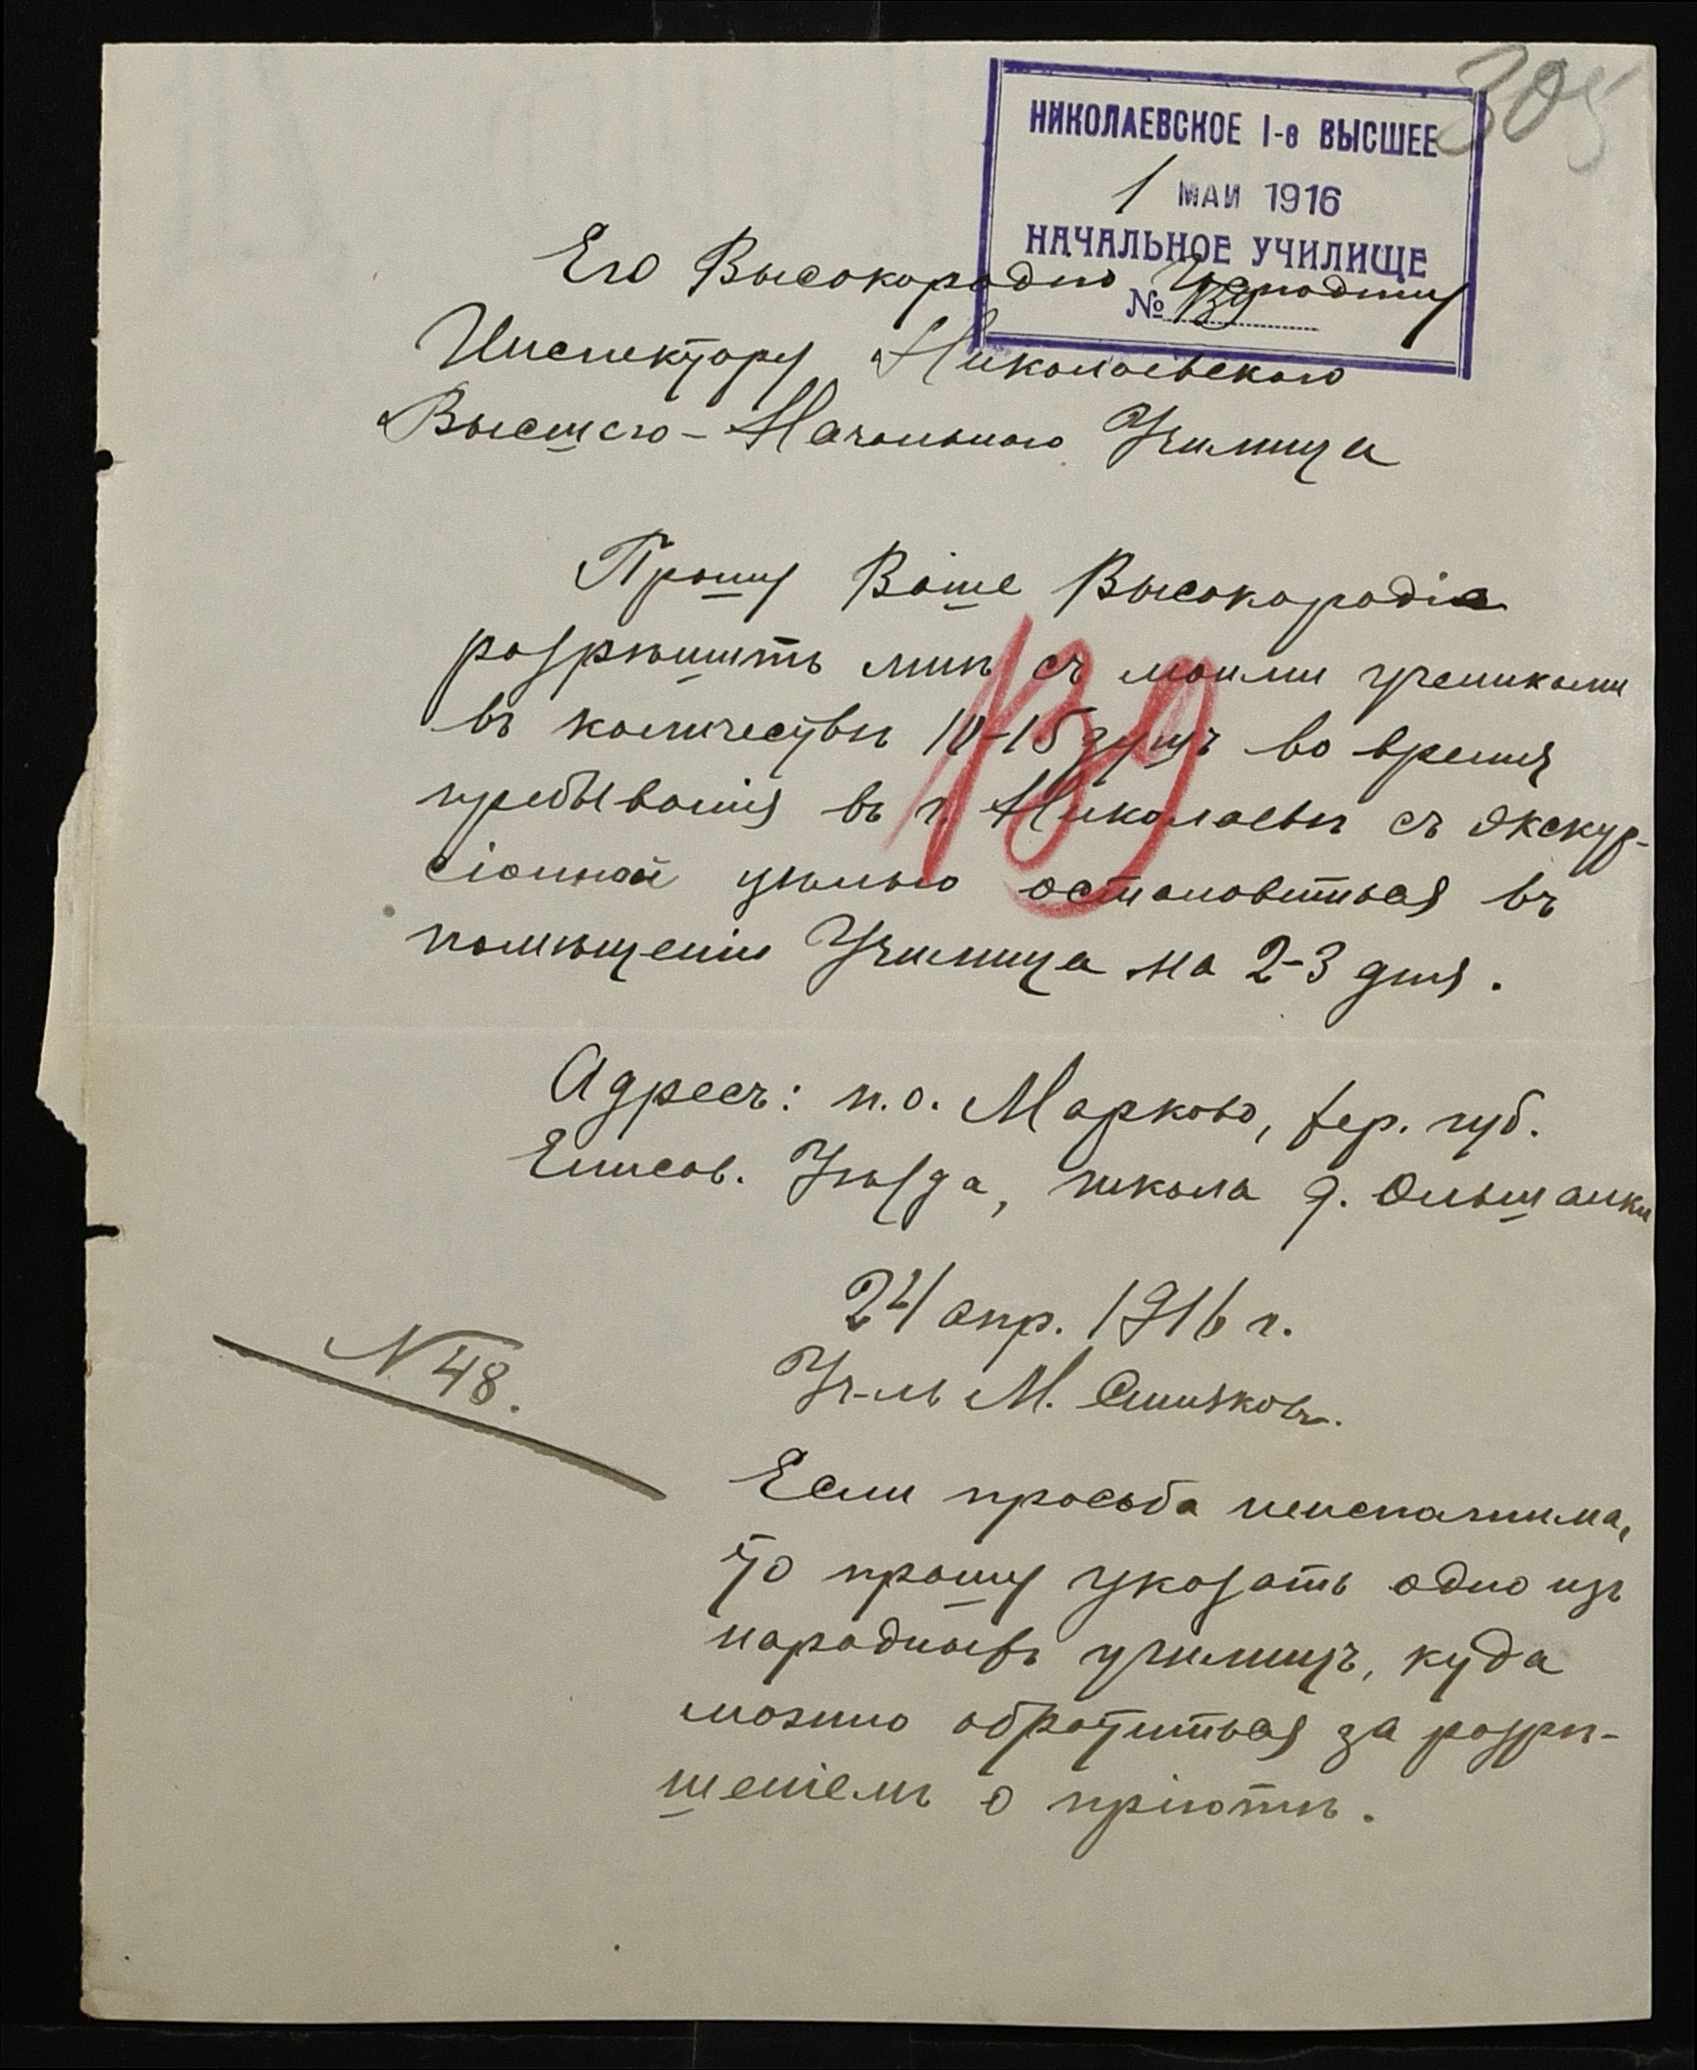 305
НИКОЛАЕВСКОЕ 1-е ВЫСШЕЕ
1 МАИ 1916
НАЧАЛЬНОЕ УЧИЛИЩЕ
№ 139
Его Высокородию Господину
Инспектору Николаевского
Высшего-Начального Училища
Прошу Ваше Высокородіе
разрѣшить мнѣ съ моими учениками
въ количествѣ 10-15 душъ во время
пребыванія въ г. Николаевѣ съ экскур-
сіонной цѣлью остановиться въ
помѣщеніи Училища на 2-3 дня.
139
Адресъ: п.о. Марково, Хер. губ.
Елисав. Уѣзда, школа д. Ольшанки
24 апр. 1916 г.
N 48.
Уч-ль М.
Если просьба неисполнима,
то прошу указать одно изъ
народныхъ училищъ, куда
можно обратиться за разрѣ-
шеніемъ о пріютѣ.